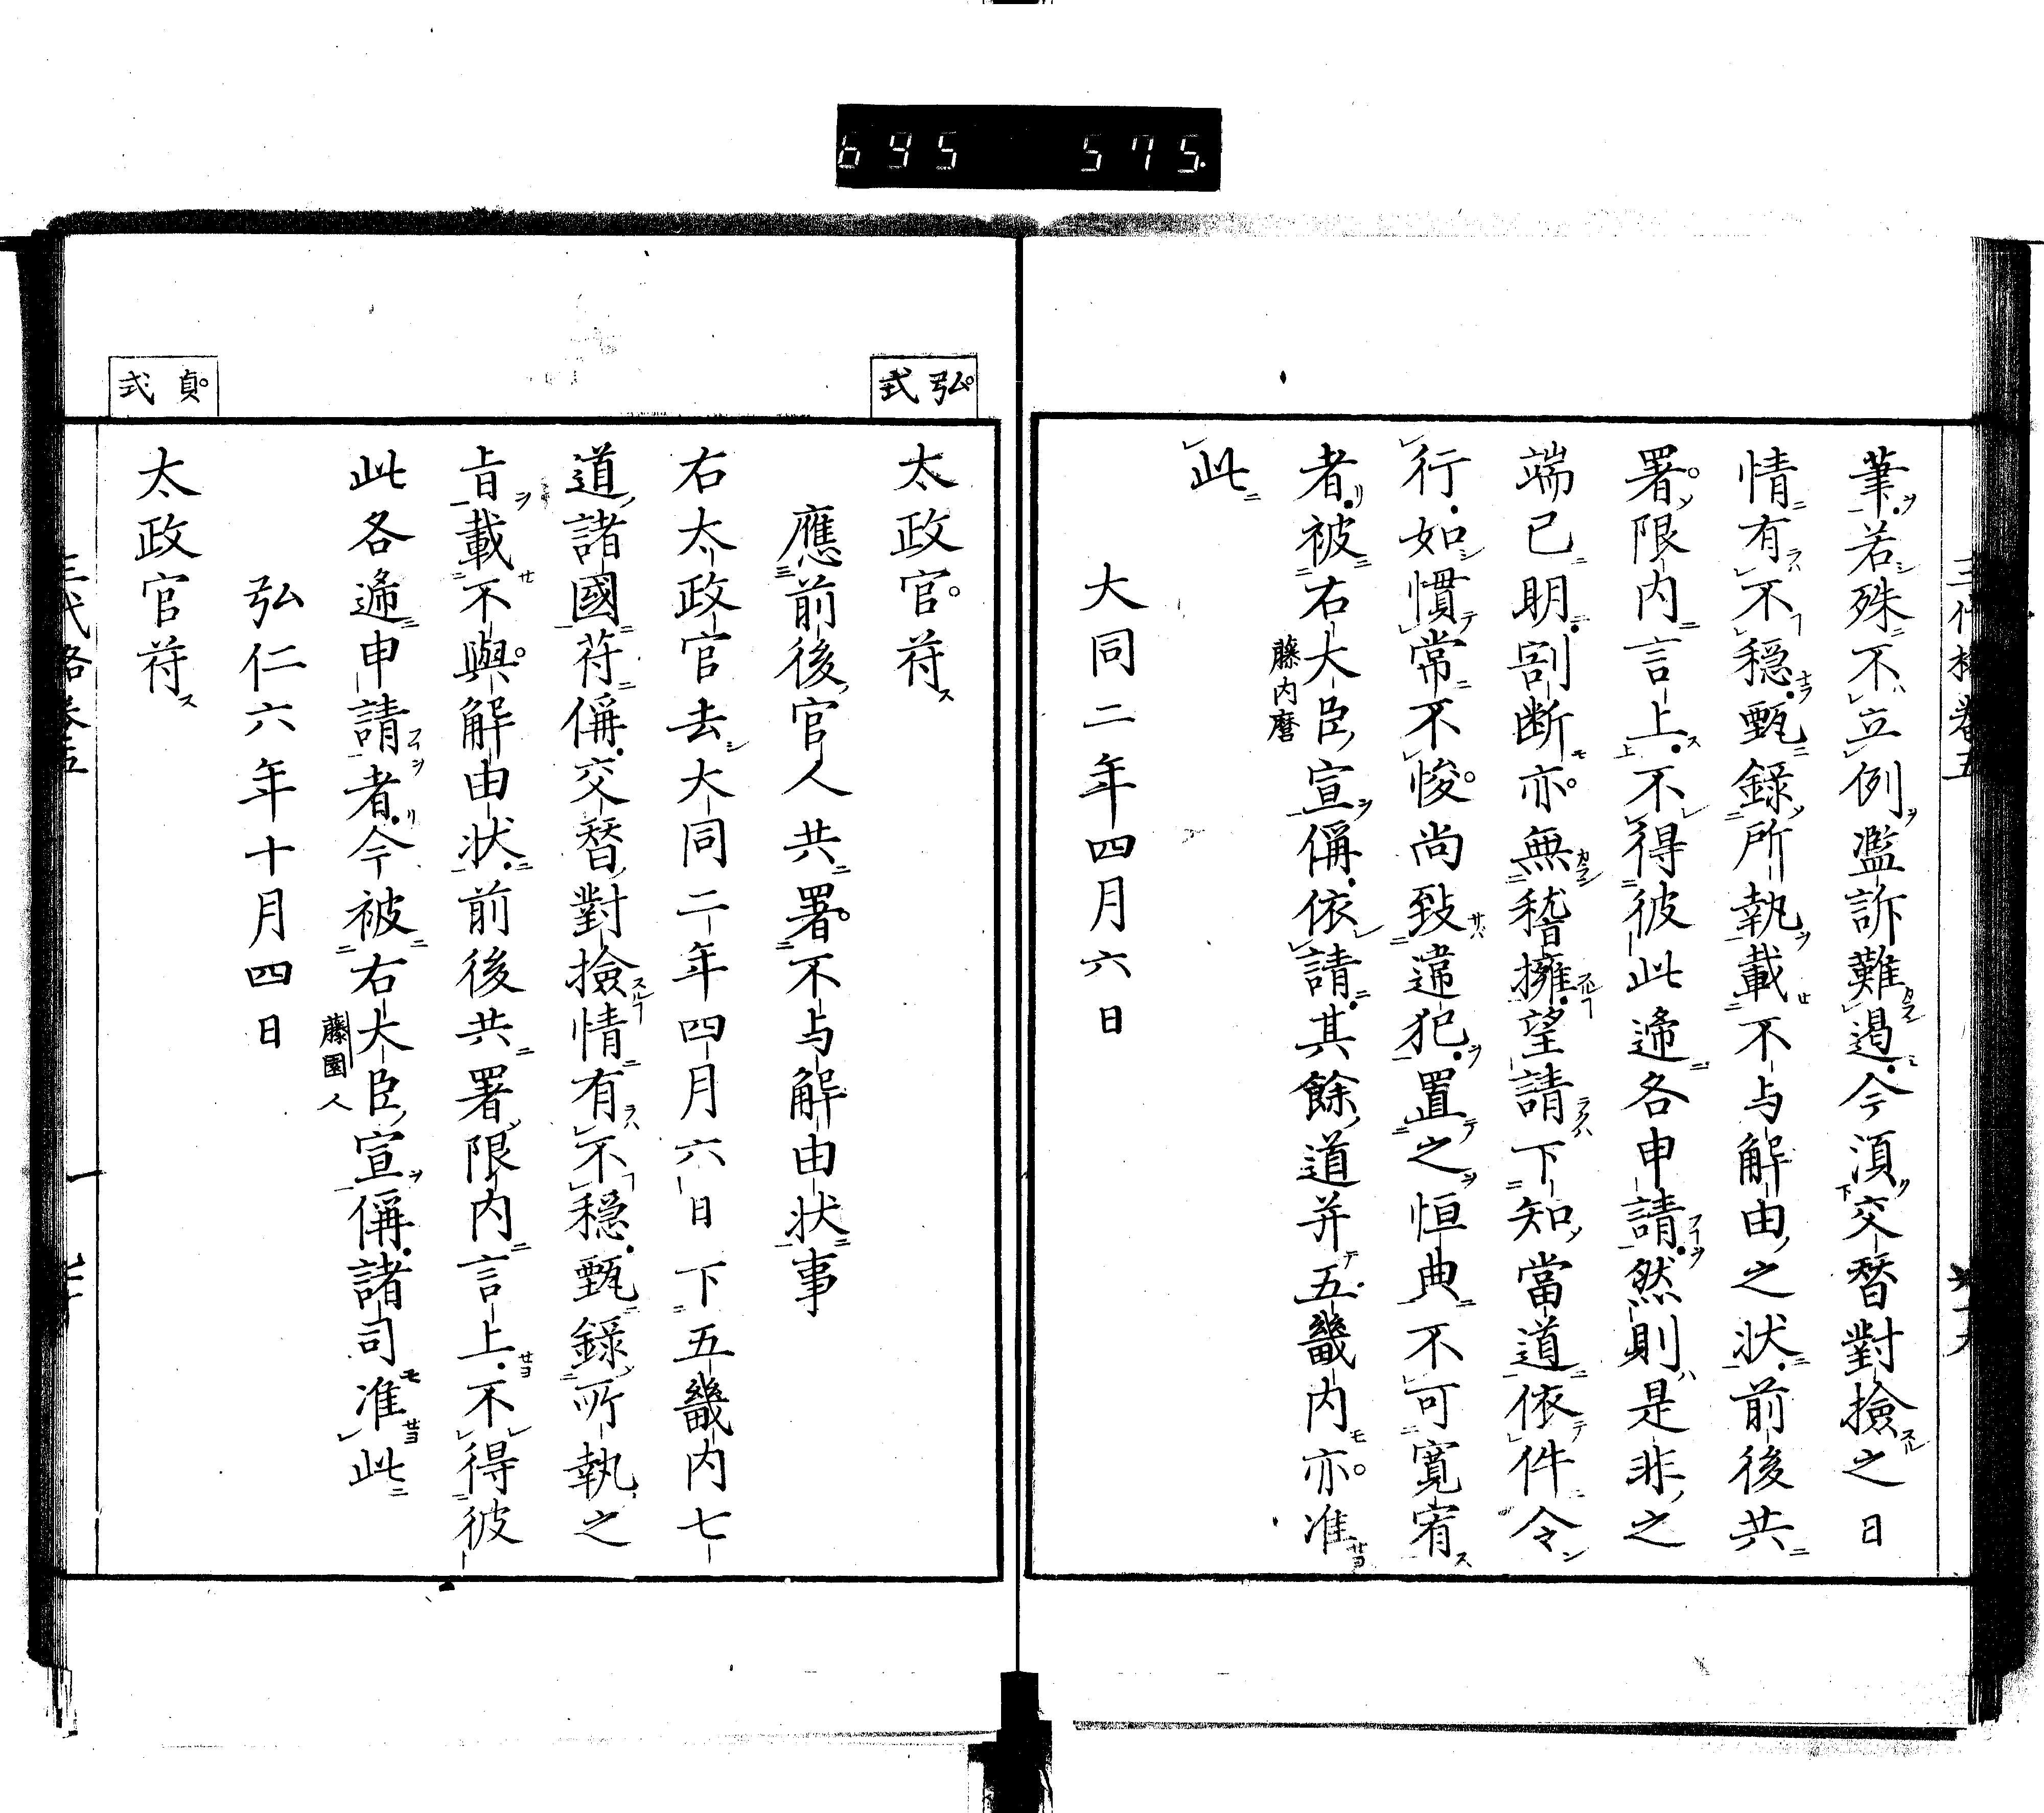 695 575
筆若殊不立例濫訴難遏今須交替對撿之日
情有不穏甄録所執載不与解由之状前後共
署限内言上不得彼此遞各申請然則是非之
端已明割断亦無稽擁望請下知當道依件令
行如慣常不悛尚致違犯置之恒典不可寛宥
者被右大臣宣偁依請其餘道并五畿内亦准
藤内麿
此
大同二年四月六日
弘式
太政官符
應前後官人共署不与解由状事
右太政官去大同二年四月六日下五畿内七
道諸國符偁交替對撿情有不穏甄録所執之
旨載不與解由状前後共署限内言上不得彼
此各遞申請者今被右大臣宣偁諸司准此
藤園人
弘仁六年十月四日
貞式
太政官符